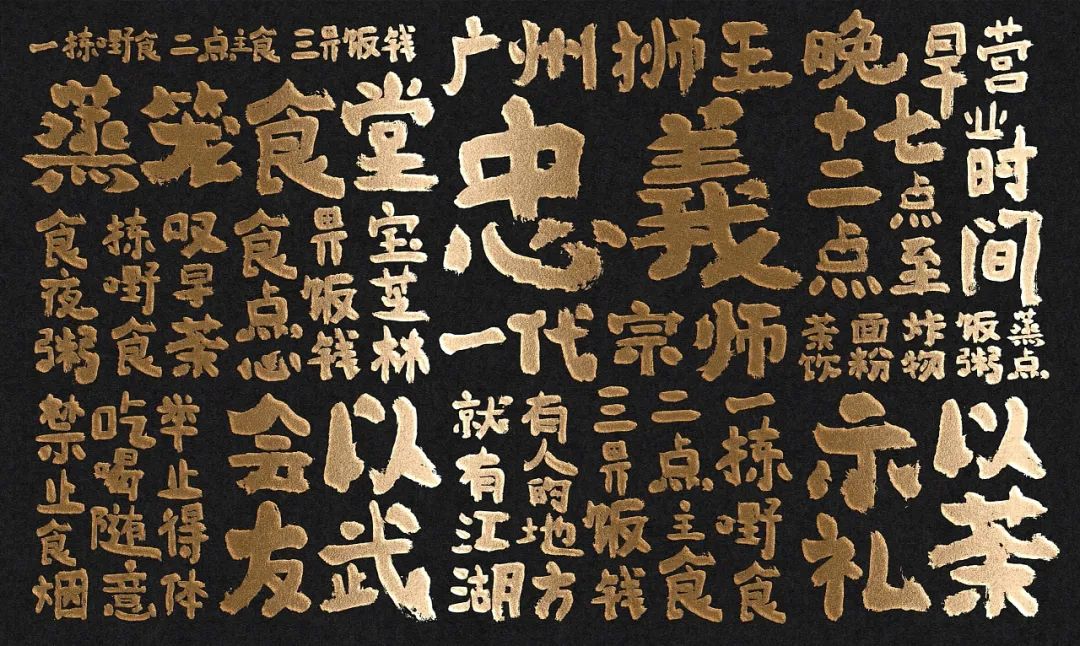 一拣嘢食 二点主食 三畀饭钱
蒸笼食堂
宝芝林
畀饭钱
食点心
叹早茶
拣嘢食
食夜粥
广州狮王
忠義
一代宗师
营业时间
早七点至
晚十二点
蒸点
饭粥
炸物
面粉
茶饮
以茶
示礼
一拣嘢食
二点主食
三畀饭钱
有人的地方
就有江湖
以武
会友
举止得体
吃喝随意
禁止食烟